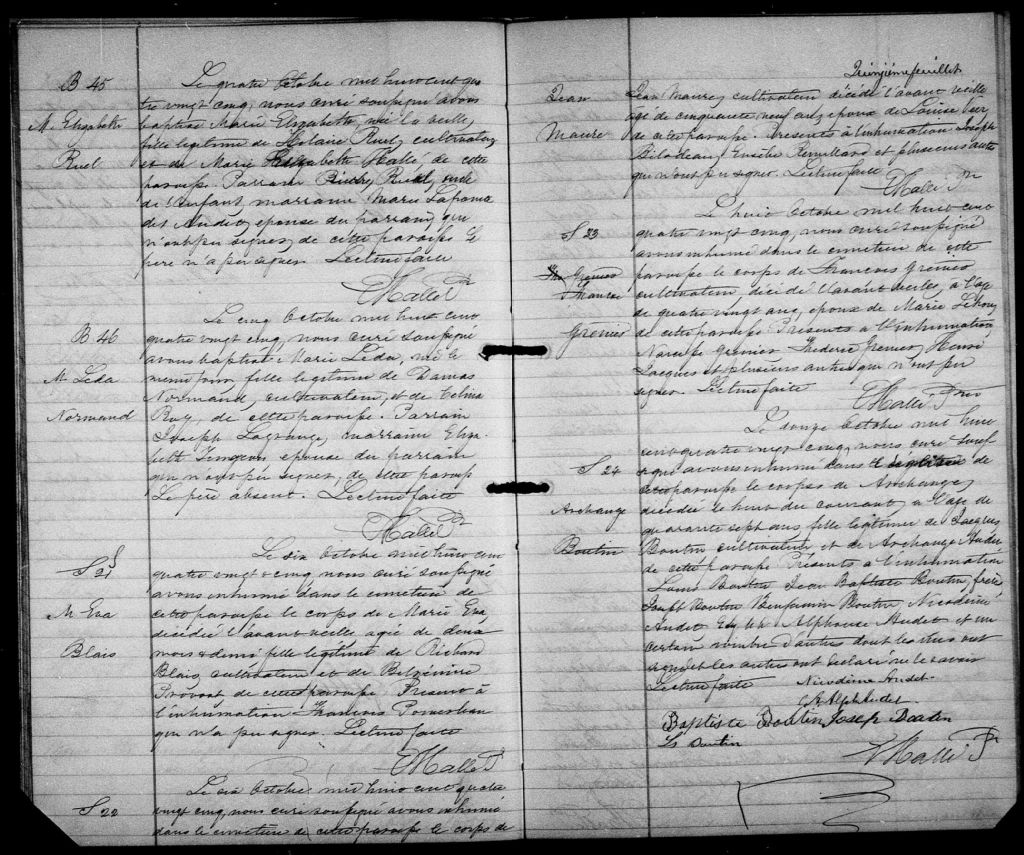 B 45
M. Elizabeth
Ruel
Le quatre Octobre mil huit cent qua
tre vingt cinq, nous curé soussigné avons
baptisé Marie Elizabeth née la veille,
fille légitime de Hilaire Ruel, cultivateur
et de Marie Elizabeth Hallé de cette
paroisse. Parrain Ruel, oncle
de l'enfant marraine Marie
Audet, épouse du parrain, qui
n'ont pu signer, de cette paroisse Le
père n'a pu signer Lecture faite
Hallé Ptre
B 46
M. Leda
Normand
Le cinq Octobre mil huit cent
quatre vingt cinq, nous curé soussigné
avons baptisé Marie Leda, née le
même jour, fille légitime de Damas
Normand, cultivateur, et de Celina
Roy, de cette paroisse. Parrain
Joseph Lagrange, marraine Eliza-
beth épouse du parrain
qui n'ont pu signer, de cette paroisse
Le père absent. Lecture faite
Hallé Ptre
S 21
M. Eva
Blais
Le six Octobre mil huit cent
quatre vingt cinq, nous curé soussigné
avons inhumé dans le cimetière de
cette paroisse le corps de Marie Eva,
décédée l'avant veille agée de deux
mois & demi fille légitime de Richard
Blais, cultivateur et de
Provost de cette paroisse Présent à
l'inhumation François Pomerleau
qui n'a pu signer. Lecture faite
Hallé Ptre
S 22
Le six Octobre mil huit cent quatre
vingt cinq, nous curé soussigné avons inhumé
dans le cimetière de cette paroisse le corps de
feuillet
Jean
Maure
Jean Maure, cultivateur décédé l'avant veille
agé de cinquante neuf ans, époux de Louise
de cette paroisse. Présents à l'inhumation Joseph
Bilodeau, Remillard et plusieurs autres
qui n'ont pu signer. Lecture faite
Hallé Ptre
S 23
Grenier
Grenier
Le huit Octobre mil huit cent
quatre vingt cinq, nous curé soussigné
avons inhumé dans le cimetière de cette
paroisse le corps de François Grenier
cultivateur, décédé l'avant veille, à l'age
de quatre vingt ans, époux de Marie
de cette paroisse Présents à l'inhumation
Narcisse Grenier Grenier Henri
Jacques et plusieurs autres qui n'ont pu
signer. Lecture faite
Hallé Ptre
S 24
Archange
Boutin
Le douze Octobre mil huit
cent quatre vingt cinq, nous curé souss-
igné avons inhumé dans le cimetière de
cette paroisse le corps de Archange,
décédée le huit du courant, à l'age de
quarante sept ans fille légitime de Jacques
Boutin cultivateur et de Archange Audet
de cette paroisse Présents à l'inhumation
Louis Boutin Jean Baptiste Boutin, frère
Joseph Boutin Benjamin Boutin, Nicodème
Audet Alphonse Audet et un
certain nombre d'autres dont les uns ont
signé et les autres ont déclaré ne le savoir
Lecture faite Nicodème Audet
Alph Audet
Baptiste Boutin Joseph Boutin
Ls Boutin
Hallé Ptre